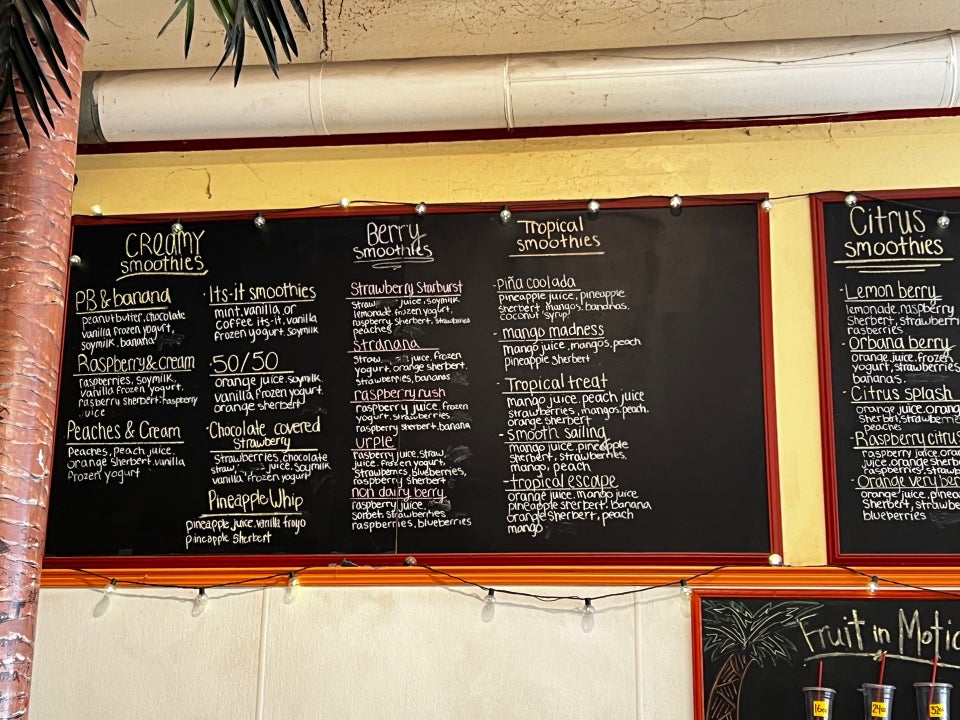 CREAMY
smoothies
PB & banana
peanutbutter, chocolate
vanilla frozen yogurt,
soymilk, banana
Raspberry & cream
raspberries, soymilk,
vanilla frozen yogurt,
raspberry sherbet, raspberry
juice
Peaches & Cream
Peaches, peach juice,
orange sherbet, vanilla
frozen yogurt
·Its-it smoothies
mint, vanilla, or
coffee its-it, vanilla
frozen yogurt, soymilk
·50/50
orange juice, soymilk,
vanilla frozen yogurt,
orange sherbet
·Chocolate covered
Strawberry
Strawberries, chocolate
straw juice, soymilk
vanilla frozen yogurt
Pineapple Whip
pineapple juice, vanilla froyo
pineapple sherbet
Berry
smoothies
Strawberry Starburst
straw juice, soymilk
lemonade, frozen yogurt,
raspberry sherbet, strawberries
peaches
stranana
straw juice, frozen
yogurt, orange sherbet,
strawberries, bananas
raspberry rush
raspberry juice, frozen
yogurt, strawberries,
raspberry sherbet, banana
urple
rasberry juice, straw
juice, frozen yogurt,
strawberries, blueberries,
raspberry sherbet
non dairy berry
raspberry juice,
sorbet, strawberries
raspberries, blueberries
Tropical
smoothies
·Piña coolada
pineapple juice, pineapple
sherbet, mangos, bananas,
coconut syrup
·mango madness
mango juice, mangos, peach
pineapple sherbet
·Tropical treat
mango juice, peach juice
strawberries, mangos, peach,
orange sherbet
-smooth sailing
mango juice, pineapple
sherbet, strawberries,
mango, peach
-tropical escape
orange juice, mango juice
pineapple sherbet, banana
orange sherbet, peach
mango
Citrus
smoothies
·Lemon berry
lemonade, raspberry
Sherbet, strawberri
rasberries
·Orbana berry
orange juice, frozen
yogurt, strawberries
bananas.
·Citrus splash
orange juice, orang
sherbet, strawberri
peaches
·Raspberry citrus
raspberry juice, oran
juice, orange sherb
raspberries, straw
·Orange very ber
orange juice, pinea
Sherbet, strawb
blueberries
Fruit in Motio
16oz
24oz
32oz